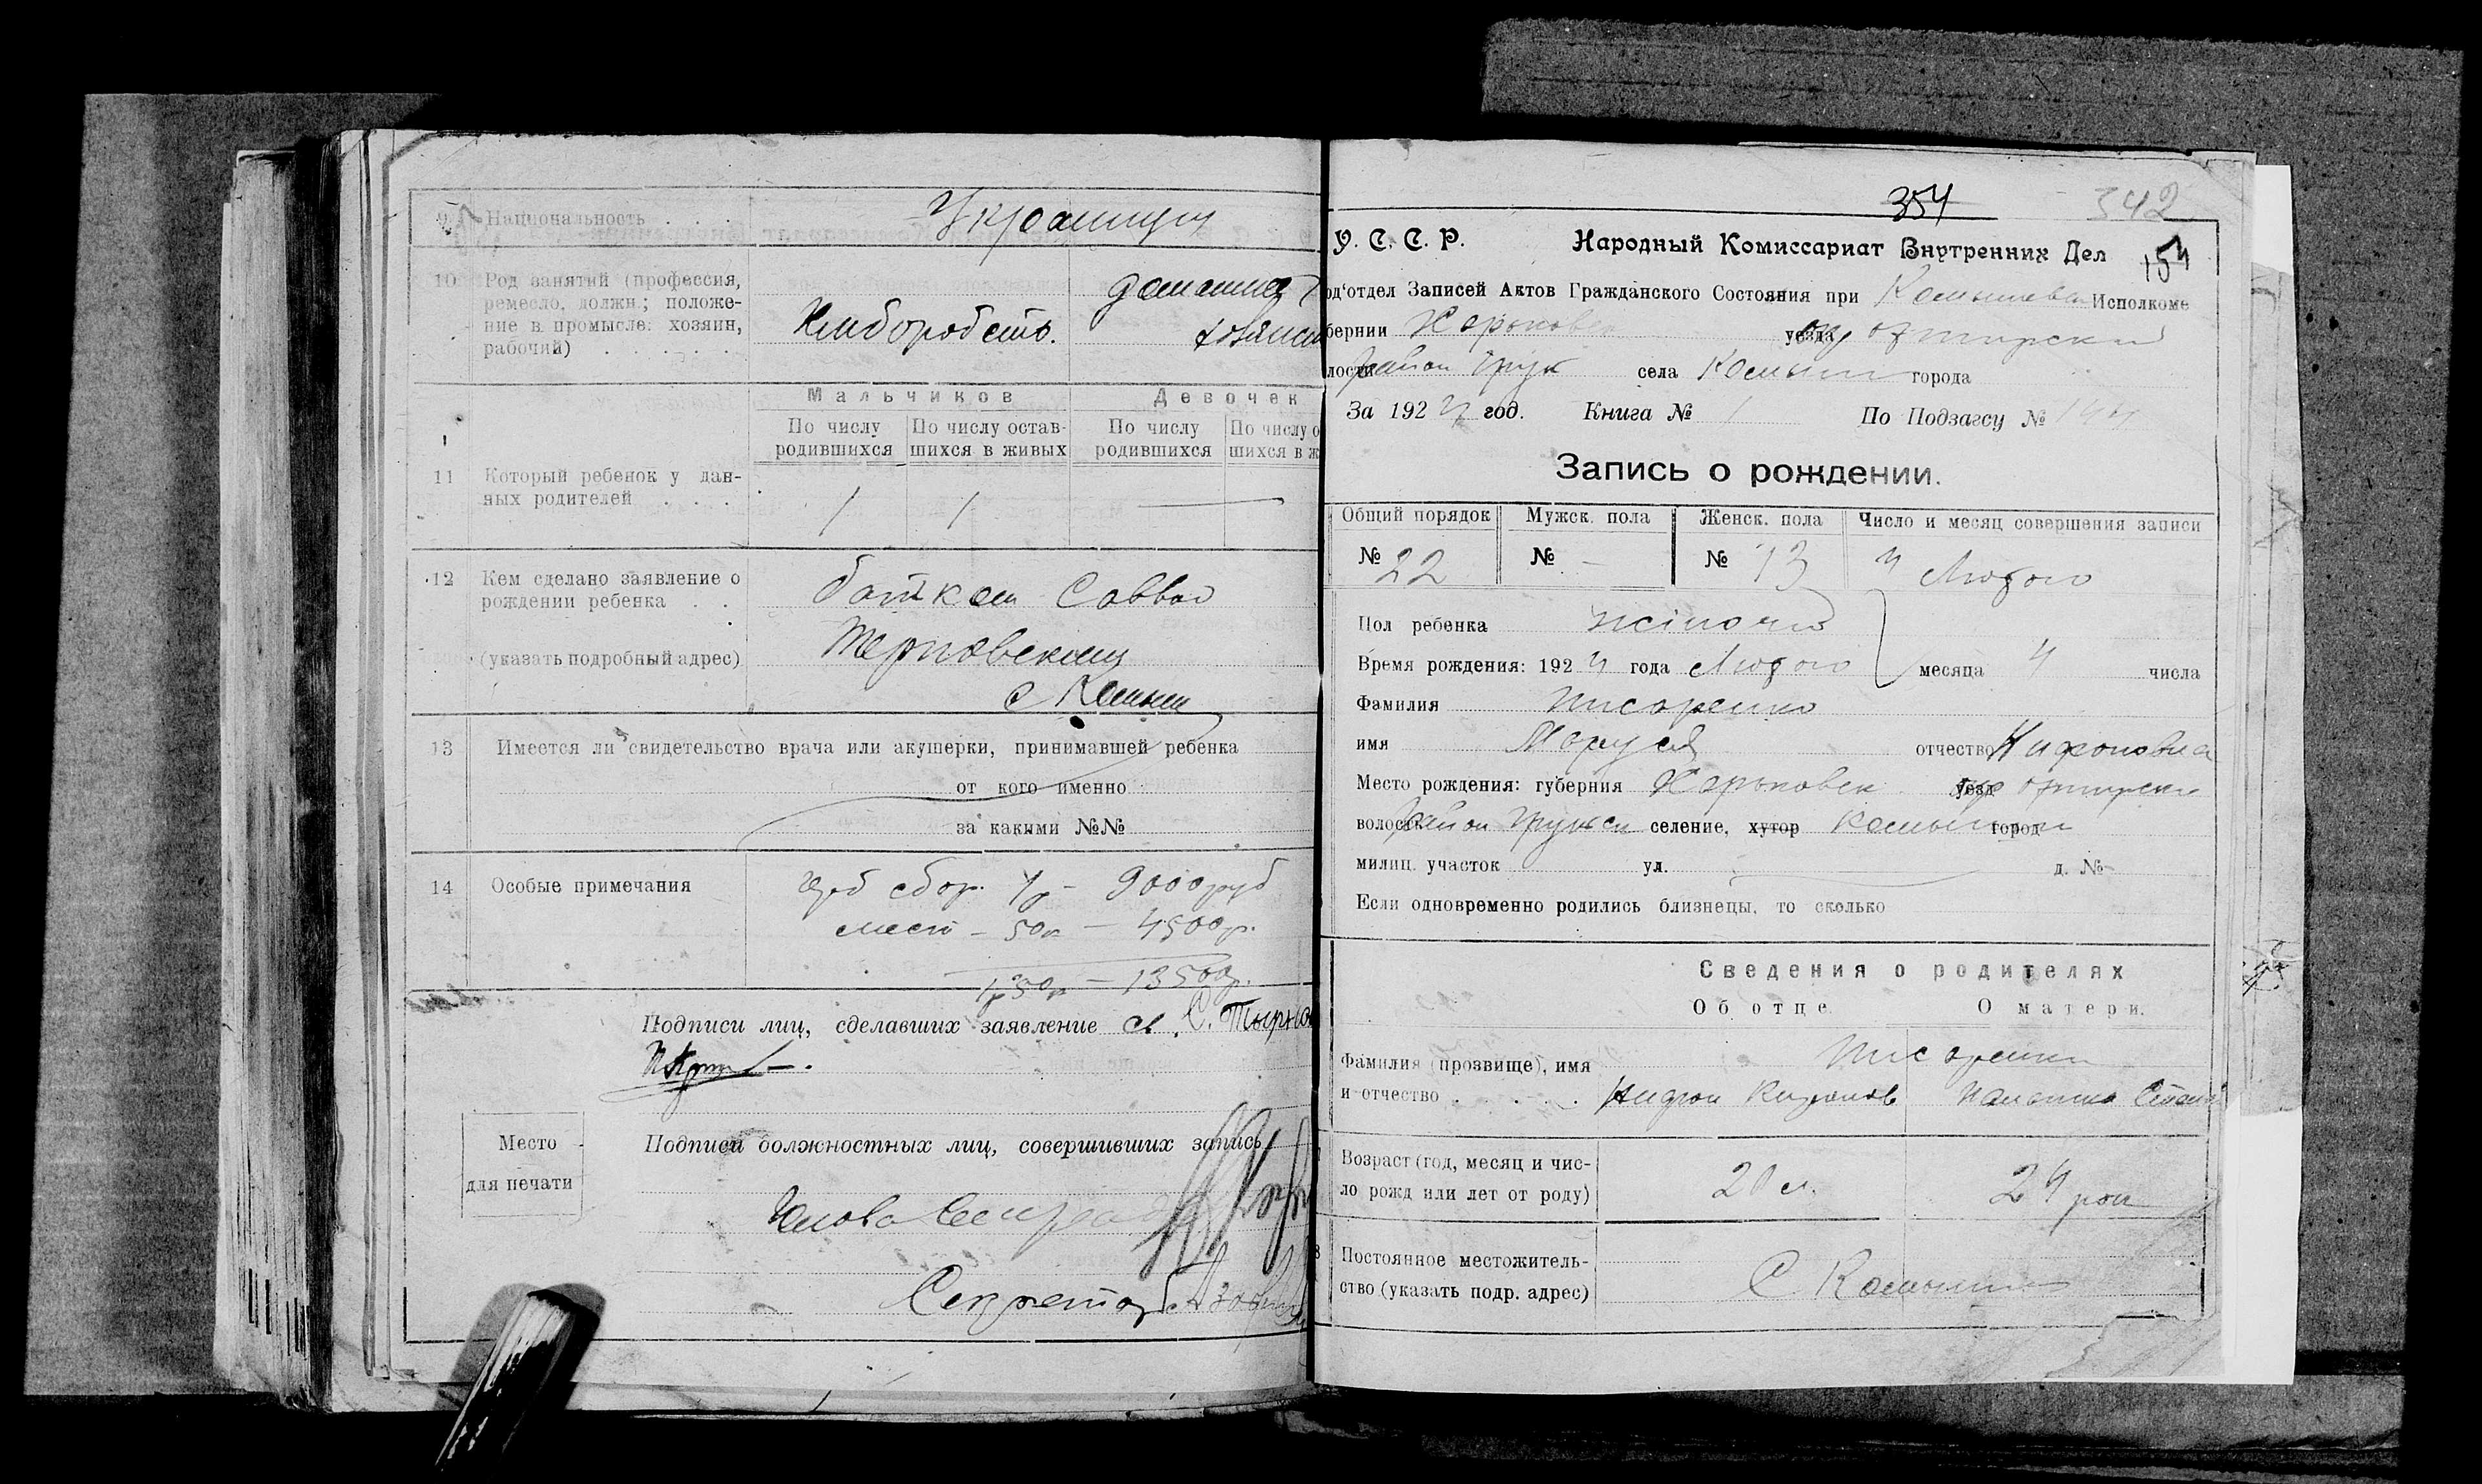 9 Национальность . . . .
Украинцы
10 Род занятий (профессия,
ремесло, должн.; положе-
ние в промысле: хозяин,
рабочий) . . . . . .
Хлиборобство.
домашнэ
хозяист
Мальчиков
Девочек
По числу
родившихся
По числу остав-
шихся в живых
По числу
родившихся
По числу о
шихся в ж
11 Который ребенок у дан-
ных родителей . . .
1 1 —
12 Кем сделано заявление о
рождении ребенка . .
(указать подробный адрес)
батком Савва
Терновским
с Комыши
13 Имеется ли свидетельство врача или акушерки, принимавшей ребенка
от кого именно
за какими №№
14 Особые примечания
герб сбор. 1р — 9000 руб
мест — 50к — 4500р.
1р50к — 13500р.
Подписи лиц, сделавших заявление С. Тырно
Место
для печати
Подписи должностных лиц, совершивших запись
Голова
Секретарь
354 342
154
У. С. С. Р. Народный Комиссариат Внутренних Дел
од'отдел Записей Актов Гражданского Состояния при Комышеван Исполкоме
бернии Харьковск уезда окр охтирский
лости район Грун села Комыши города
За 1924 год. Книга № 1 По Подзагсу № 144
Запись о рождении.
Общий порядок Мужск. пола Женск. пола Число и месяц совершения записи
№ 22 № — № 13 4 Лютого
Пол ребенка жіноча
Время рождения: 1924 года Лютого месяца 4 числа
Фамилия Писаренко
имя Маруся отчество Нифоновна
Место рождения: губерния Харьковск уезд окр охтирски
волость район Грунск селение, хутор Комыши город
милиц. участок ул. д. №
Если одновременно родились близнецы, то сколько
Сведения о родителях
Об отце О матери.
Писаренки
Фамилия (прозвище), имя
и отчество . . . . . Нифон
Возраст (год, месяц и чис-
ло рожд или лет от роду)
20 л. 24 рок
Постоянное местожитель-
ство (указать подр. адрес)
С Комыши